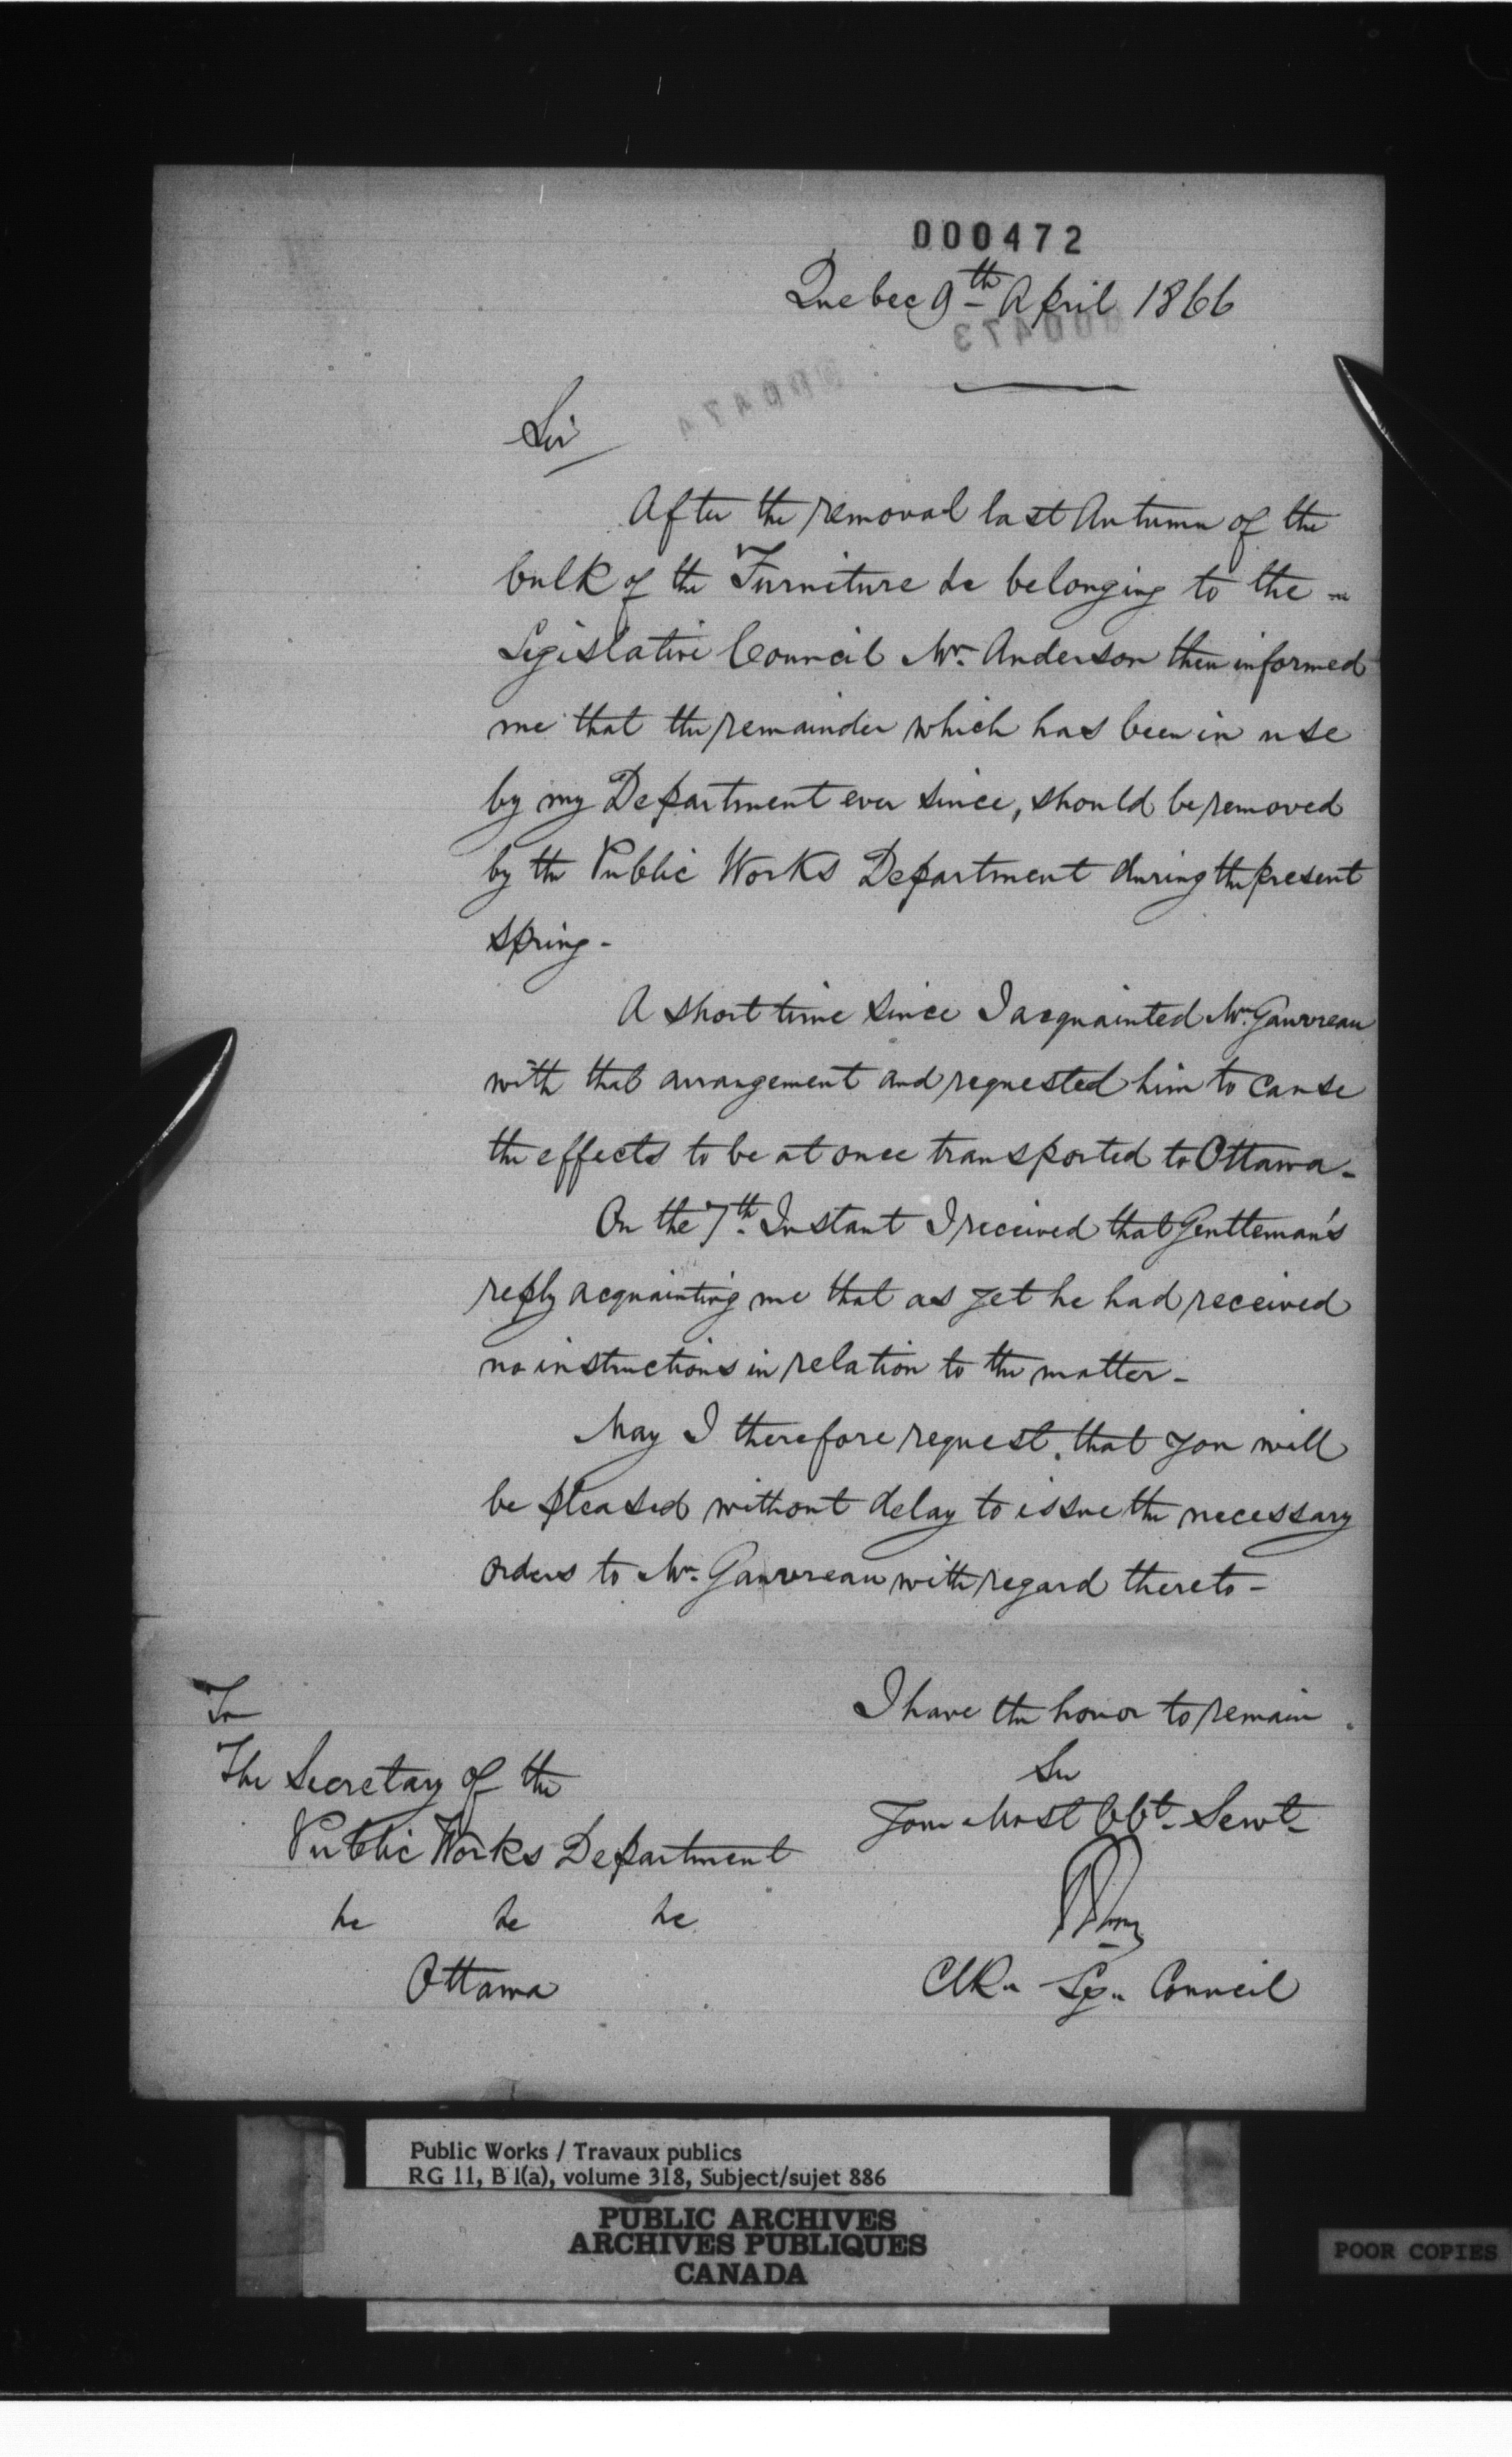 000472
Quebec 9th April 1866
000473
000474
Sir
After the removal last Autumn of the
bulk of the Furniture &c belonging to the
Legislative Council Mr. Anderson then informed
me that the remainder which has been in use
by my Department ever since, should be removed
by the Public Works Department during the present
spring -
A short time since I acquainted Mr. Gauvreau
with that arrangement and requested him to cause
the effects to be at once transported to Ottawa -
On the 7th. Instant I received that Gentleman's
reply acquainting me that as yet he had received
no instructions in relation to the matter -
May I therefore request that you will
be pleased without delay to issue the necessary
orders to Mr. Gauvreau with regard thereto -
I have the honor to remain
Sir
Your Most Obt. Servt.
Clk. Leg. Council
To
The Secretary of the
Public Works Department
&c &c &c
Ottawa
Public Works / Travaux publics
RG 11, B 1(a), volume 318, Subject/sujet 886
PUBLIC ARCHIVES
ARCHIVES PUBLIQUES
CANADA
POOR COPIES